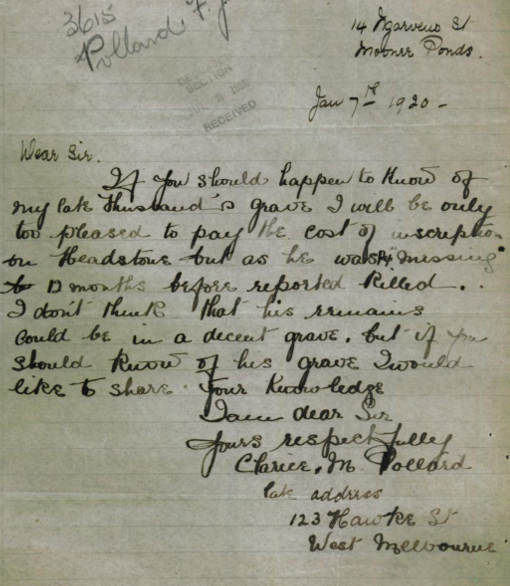 3615
Pollard. F. J
14 Ngarveno St
Moonee Ponds.
SECTION
RECEIVED
Jan 7th 1920 -
Dear Sir.
If you should happen to know of
my late Husband's grave I will be only
too pleased to pay the cost of inscription
on Headstone but as he was "missing"
12 months before reported killed..
I don't think that his remains
could be in a decent grave. but if you
should know of his grave I would
like to share. Your knowledge
I am dear Sir
Yours respectfully
Clarice. M. Pollard
late address
123 Hawke St
West Melbourne